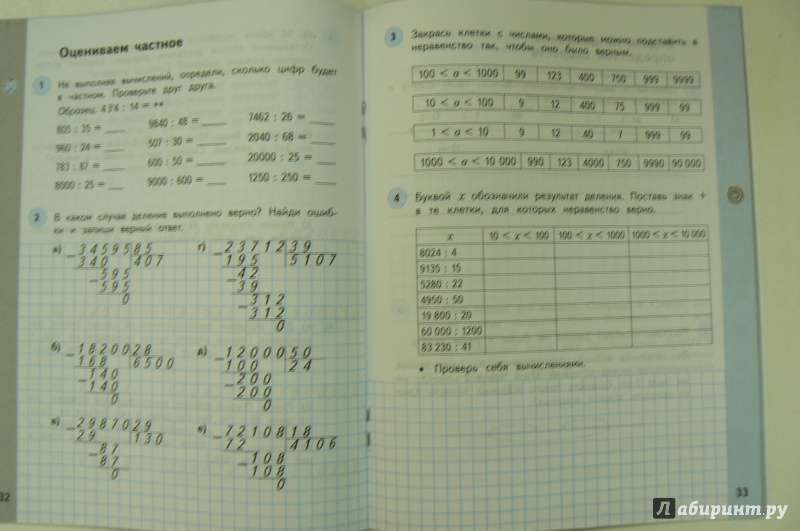 Оцениваем частное
1 Не выполняя вычислений, определи, сколько цифр будет
в частном. Проверьте друг друга.
Образец. 434 : 14 = **
805 : 35 = ___ 9840 : 48 = ___ 7462 : 26 = ___
960 : 24 = ___ 507 : 30 = ___ 2040 : 68 = ___
783 : 87 = ___ 600 : 50 = ___ 20000 : 25 = ___
8000 : 25 = ___ 9000 : 600 = ___ 1250 : 250 = ___
2 В каком случае деление выполнено верно? Найди ошиб-
ки и запиши верный ответ.
а) 34595 85
340 407
595
595
0
г) 23712 39
195 5107
42
39
312
312
0
б) 18200 28
168 6500
140
140
0
д) 12000 50
100 24
200
200
0
в) 29870 29
29 130
87
87
0
е) 72108 18
72 4106
108
108
0
32
3 Закрась клетки с числами, которые можно подставить в
неравенство так, чтобы оно было верным.
100 < a < 1000 99 123 400 750 999 9999
10 < a < 100 9 12 400 75 999 99
1 < a < 10 9 12 40 7 999 99
1000 < a < 10 000 990 123 4000 750 9990 90 000
4 Буквой x обозначили результат деления. Поставь знак +
в те клетки, для которых неравенство верно.
x 10 < x < 100 100 < x < 1000 1000 < x < 10 000
8024 : 4
9135 : 15
5280 : 22
4950 : 50
19 800 : 20
60 000 : 1200
83 230 : 41
• Проверь себя вычислениями.
33
Лабиринт.ру